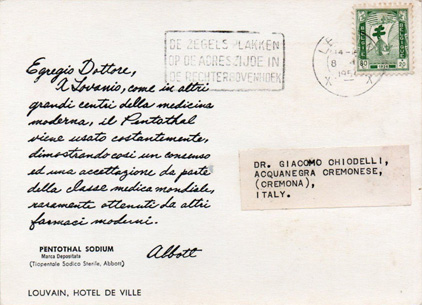 DE ZEGELS PLAKKEN
OP DE ADRESZIJDE IN
DE RECHTERBOVENHOEK
Egregio Dottore,
A Lovanio, come in altri
grandi centri della medicina
moderna, il Pentothal
viene usato costantemente,
dimostrando così un consenso
ed una accettazione da parte
della classe medica mondiale,
raramente ottenute da altri
farmaci moderni.
Abbott
DR. GIACOMO CHIODELLI,
ACQUANEGRA CREMONESE,
(CREMONA),
ITALY.
PENTOTHAL SODIUM
Marca Depositata
(Tiopentale Sodico Sterile, Abbott)
LOUVAIN, HOTEL DE VILLE